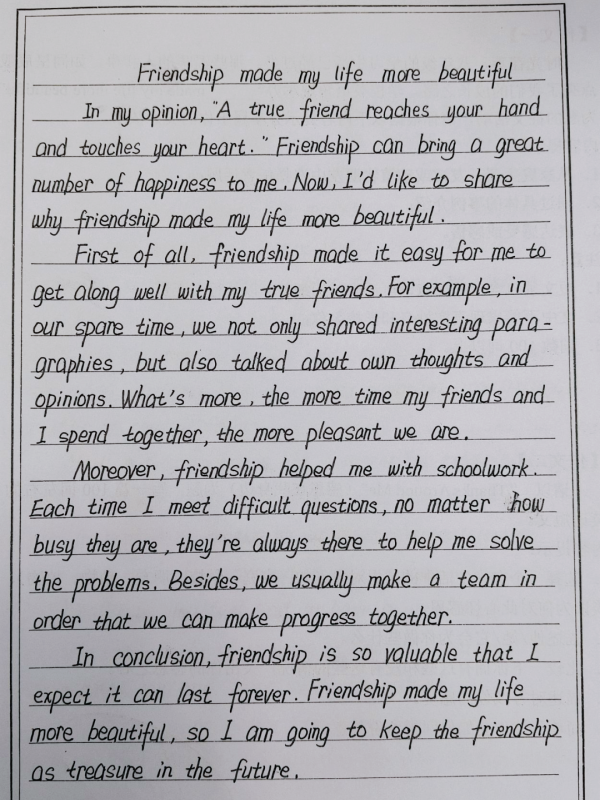 Friendship made my life more beautiful
In my opinion, "A true friend reaches your hand
and touches your heart." Friendship can bring a great
number of happiness to me. Now, I'd like to share
why friendship made my life more beautiful.
First of all, friendship made it easy for me to
get along well with my true friends. For example, in
our spare time, we not only shared interesting para-
graphies, but also talked about own thoughts and
opinions. What's more, the more time my friends and
I spend together, the more pleasant we are.
Moreover, friendship helped me with schoolwork.
Each time I meet difficult questions, no matter how
busy they are, they're always there to help me solve
the problems. Besides, we usually make a team in
order that we can make progress together.
In conclusion, friendship is so valuable that I
expect it can last forever. Friendship made my life
more beautiful, so I am going to keep the friendship
as treasure in the future.